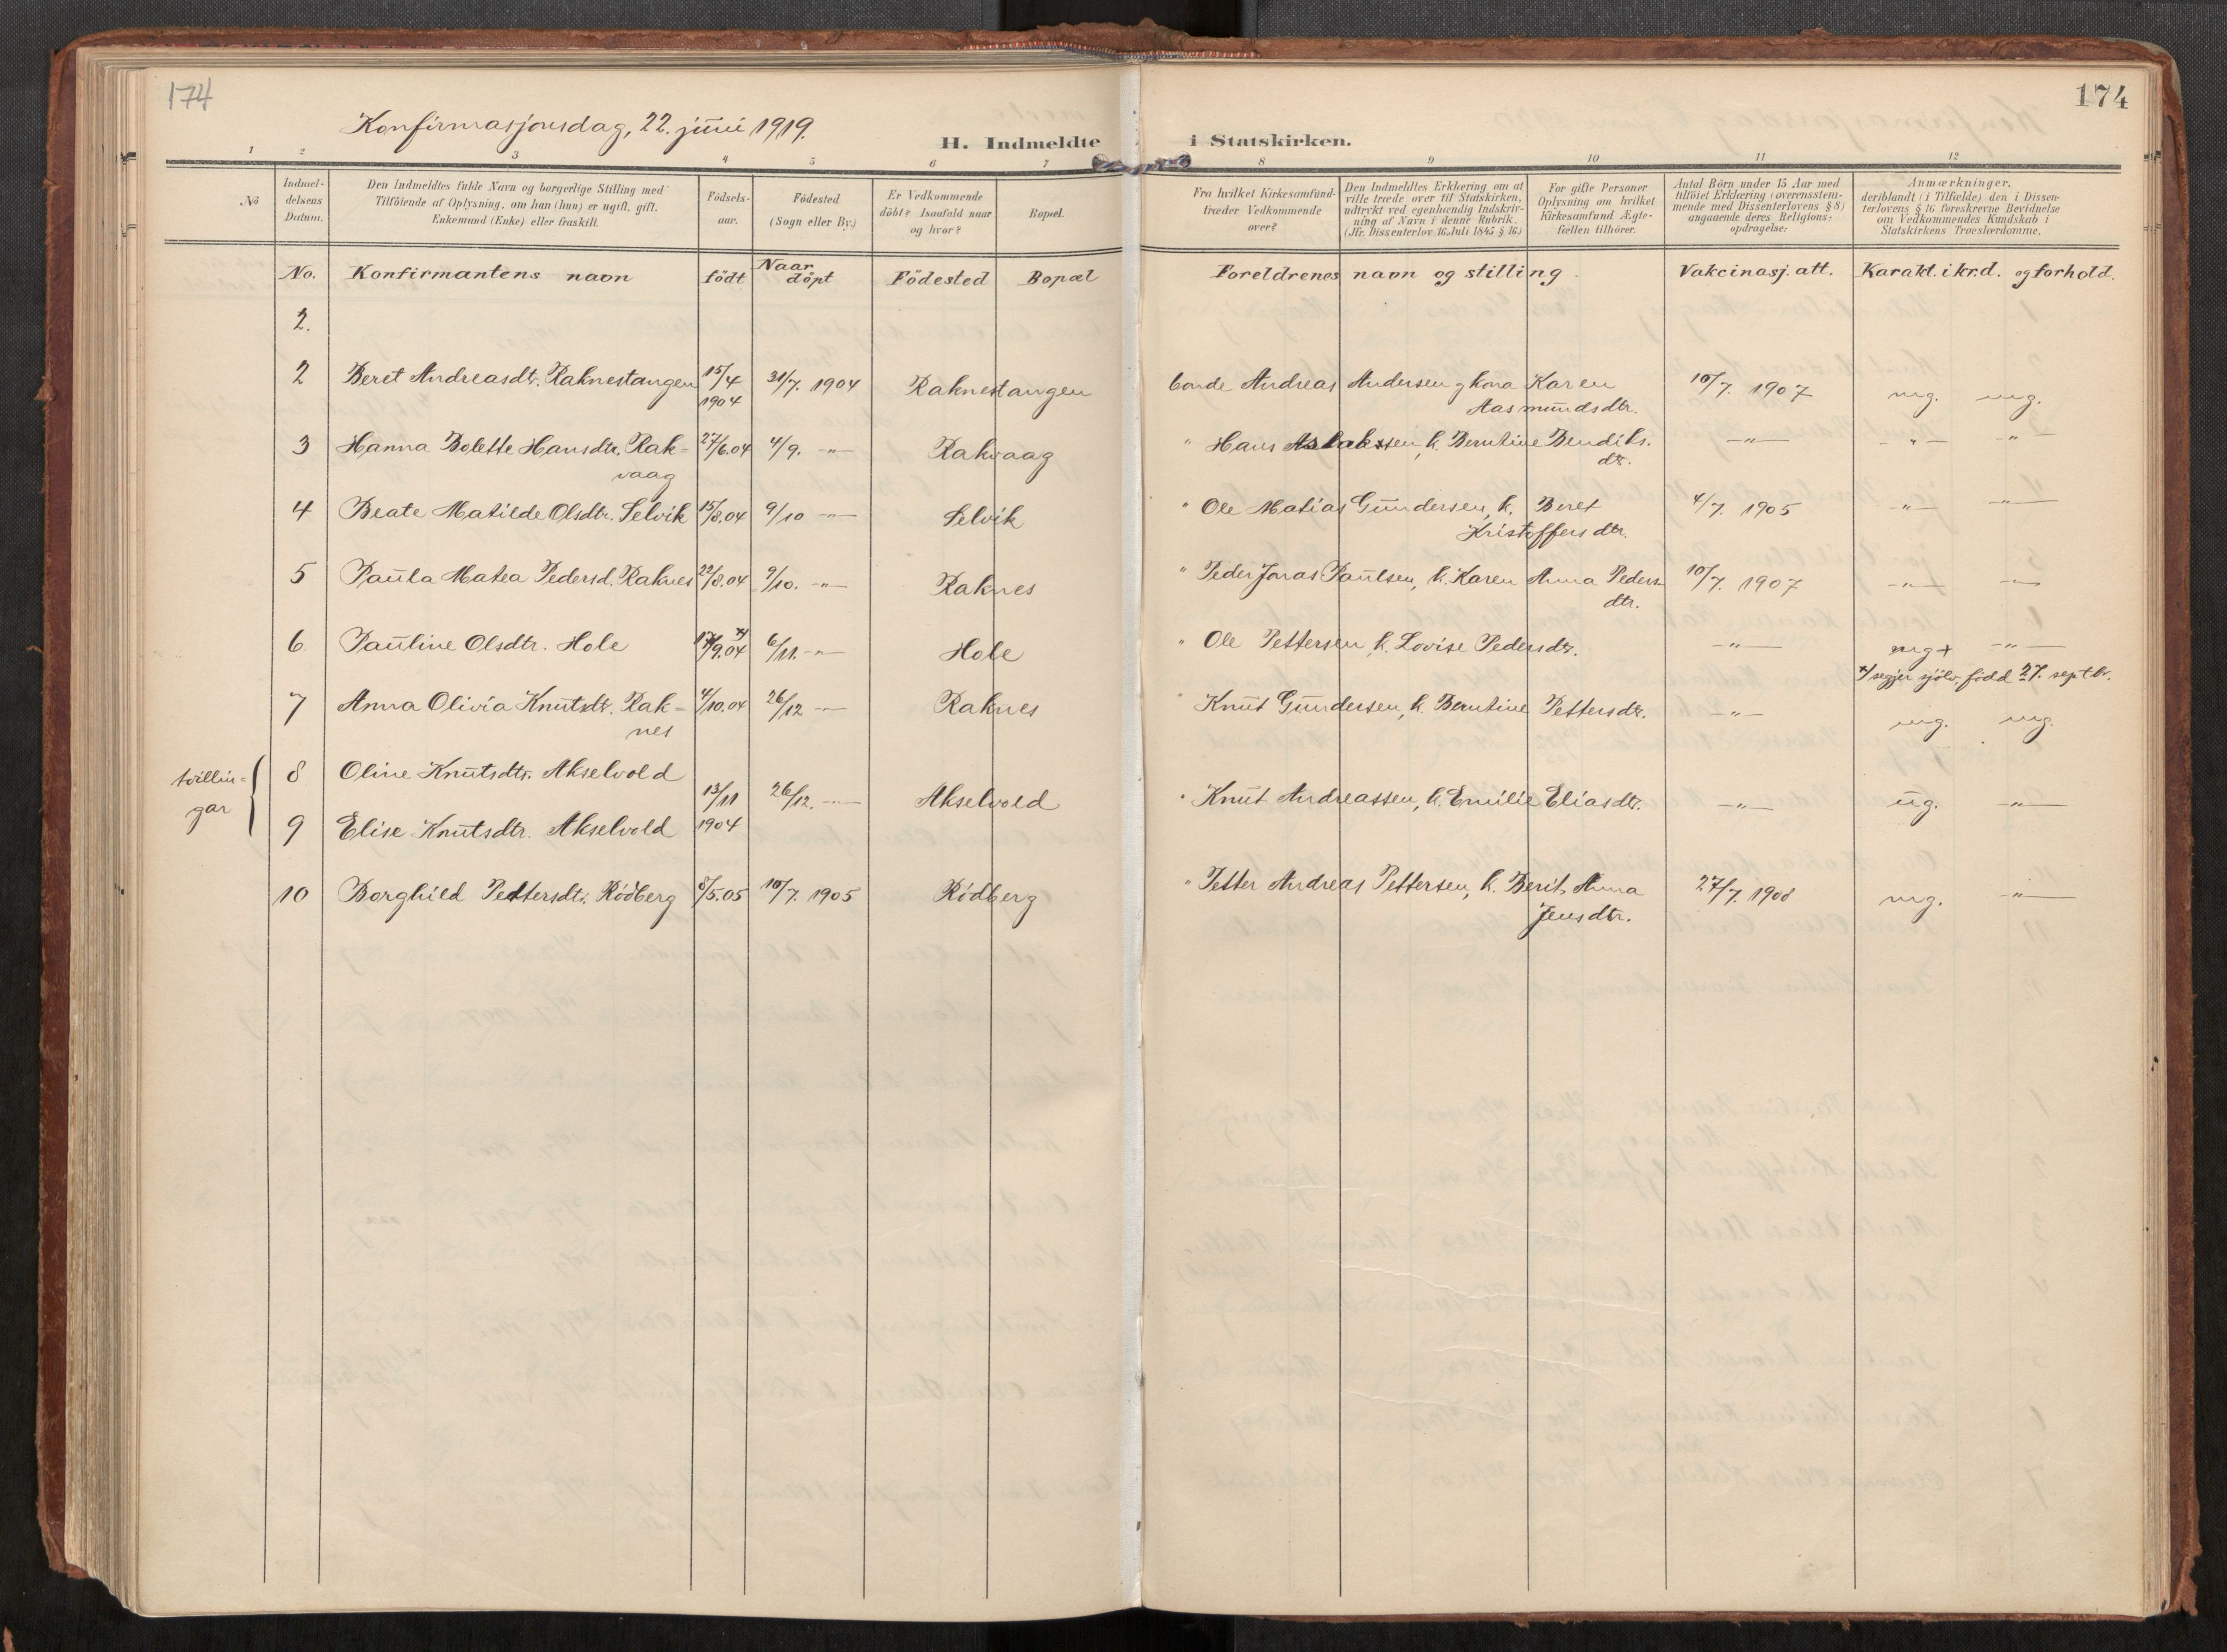 174
174
Konfirmasjonsdag, 22. juni 1919.
H. Indmeldte i Statskirken.
1 2 3 4 5 6 7 8 9 10 11 12
No
Indmel-
delsens
Datum.
Den Indmeldtes fulde Navn og borgerlige Stilling med
Tilföiende af Oplysning, om han (hun) er ugift, gift,
Enkemand (Enke) eller fraskilt.
Födsels-
aar.
Födested
(Sogn eller By.)
Er Vedkommende
döbt? Isaafald naar
og hvor?
Bopæl.
Fra hvilket Kirkesamfund
træder Vedkommende
over?
Den Indmeldtes Erklæring om at
ville træde over til Statskirken,
udtrykt ved egenhændig Indskriv-
ning af Navn i denne Rubrik.
(Jfr. Dissenterlov 16 Juli 1845 § 16.)
For gifte Personer
Oplysning om hvilket
Kirkesamfund Ægte-
fællen tilhörer.
Antal Börn under 15 Aar med
tilföiet Erklæring (overensstem-
mende med Dissenterlovens § 8)
angaaende deres Religions-
opdragelse:
Anmærkninger,
deriblandt (i Tilfælde) den i Dissen-
terlovens § 16 foreskrevne Bevidnelse
om Vedkommendes Kundskab i
Statskirkens Troeslærdomme.
No. Konfirmantens navn födt Naar döpt Födested Bopæl Foreldrenes navn og stilling Vakcinasj. att. Karakt. i kr.d. og forhold.
2.
2 Beret Andreasdtr. Raknestangen 15/4 31/7. 1904 Raknestangen bonde Andreas Andersen og kona Karen 10/7. 1907 mg. mg.
1904 Aasmundsdtr.
3 Hanna Bolette Hansdtr. Rak= 27/6.04 4/9. -"- Rakvaag " Hans Aslaksen, k. Berntine Bendiks. -"- -"- -"-
vaag dtr.
4 Beate Matilde Olsdtr. Selvik 15/8.04 9/10 -"- Selvik " Ole Matias Gundersen, k. Beret 4/7. 1905 -"- -"-
Kristoffersdtr.
5 Paula Matea Pedersd. Raknes 22/8.04 9/10. -"- Raknes " Peder Jonas Paulsen, k. Karen Anna Peders 10/7. 1907 -"- -"-
dtr.
6 Pauline Olsdtr. Hole 17/9.04 x) 6/11. -"- Hole " Ole Pettersen k. Lovise Pedersdtr. -"- mg+ -"-
x/ segjer sjölv, född 27. septbr.
7 Anna Olivia Knutsdtr. Rak= 4/10.04 26/12 -"- Raknes " Knut Gundersen, k. Berntine Pettersdtr. -"- mg. mg.
nes
tvillin=
gar
8 Oline Knutsdtr. Akselvold
13/11 26/12. -"- Akselvold " Knut Andreassen, k. Emilie Eliasdtr. -"- ug. -"-
9 Elise Knutsdtr. Akselvold 1904
10 Borghild Pettersdtr. Rödberg 8/5.05 10/7. 1905 Rödberg " Petter Andreas Pettersen, k. Berit Anna 27/7. 1908 mg. -"-
Jensdtr.